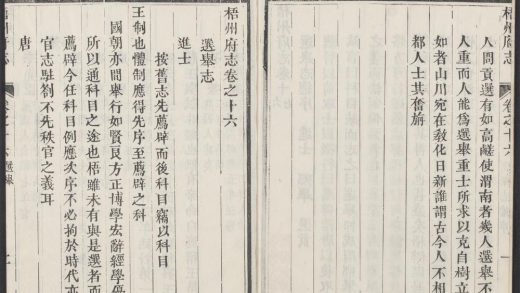 梧州府志 卷之十六
人問貢選有如高鹾使渭南者幾人選舉不
人重而人能爲選舉重士所求以克自樹立
如者山川宛在敎化日新誰謂古今人不相
都人士其奮旃
梧州府志卷之十六
選舉志
進士
按舊志先薦辟而後科目竊以科目
王制也體制應得先序至薦辟之科
國朝亦間舉行如賢良方正博學宏辭經學優
所以通科目之途也梧雖未有與是選者而
薦辟今任科目例應次序不必拘於時代亦
官志駐劄不先秩官之義耳
唐